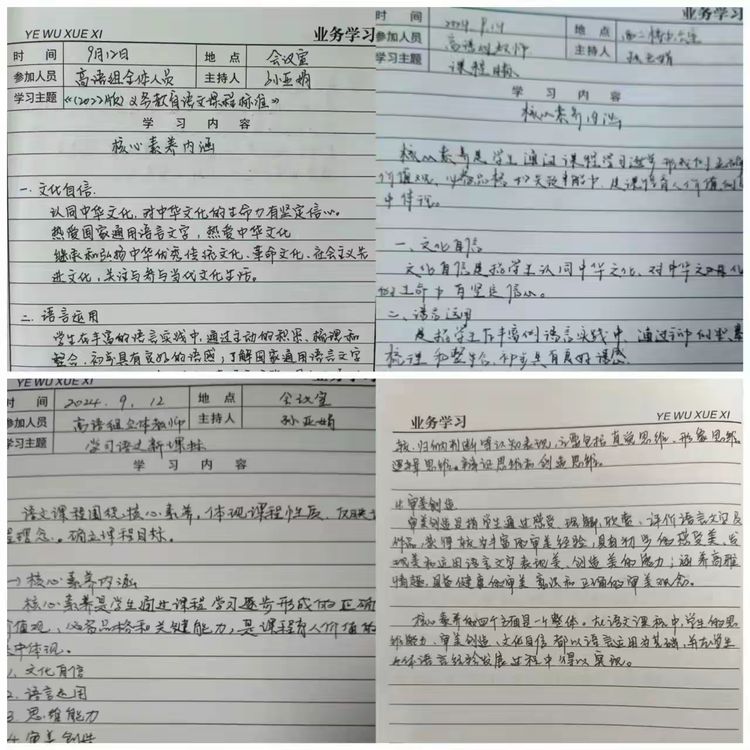 YE WU XUE XI
业务学习
时 间 9月12日 地 点 会议室
参加人员 高语组全体人员 主持人 孙亚娟
学习主题 《(2022版)义务教育语文课程标准》
学 习 内 容
核心素养内涵
一.文化自信.
认同中华文化,对中华文化的生命力有坚定信心。
热爱国家通用语言文字,热爱中华文化
继承和弘扬中华优秀传统文化、革命文化、社会主义先
进文化,关注与参与当代文化生活。
二.语言运用
学生在丰富的语言实践中,通过主动的积累、梳理和
整合,初步具有良好的语感;了解国家通用语言文字
业务学习
时 间 2024.9.14 地 点
参加人员 高语组教师 主持人 孙亚娟
学习主题 课程标
学 习 内 容
核心素养内涵
核心素养是学生通过课程学习逐步形成的正确
价值观、必备品格和关键能力,是课程育人价值的
中体现。
一、文化自信
文化自信是指学生认同中华文化,对中华文化
的生命力有坚定信心。
二、语言运用
是指学生在丰富的语言实践中,通过主动的积累
梳理和整合,初步具有良好语感
YE WU XUE XI
业务学习
时 间 2024.9.12 地 点 会议室
参加人员 高语组全体教师 主持人 孙亚娟
学习主题 学习语文新课标
学 习 内 容
语文课程围绕核心素养,体现课程性质,反映
程理念。确立课程目标。
(一)核心素养内涵
核心素养是学生通过课程学习逐步形成的正确
价值观,必备品格和关键能力,是课程育人价值的
中体现。
1、文化自信
2、语言运用
3、思维能力
4、审美创造
业务学习
YE WU XUE XI
较、归纳判断等认知表现,主要包括直觉思维、形象思维、
逻辑思维、辩证思维和创造思维。
4.审美创造
审美创造是指学生通过感受、理解、欣赏、评价语言文字及
作品,获得较为丰富的审美经验,具有初步的感受美、发
现美和运用语言文字表现美、创造美的能力;涵养高雅
情趣,具备健康的审美意识和正确的审美观念。
核心素养的四个方面是一个整体。在语文课程中,学生的思
维能力、审美创造、文化自信都以语言运用为基础,并在学生
个体语言经验发展过程中得以实现。